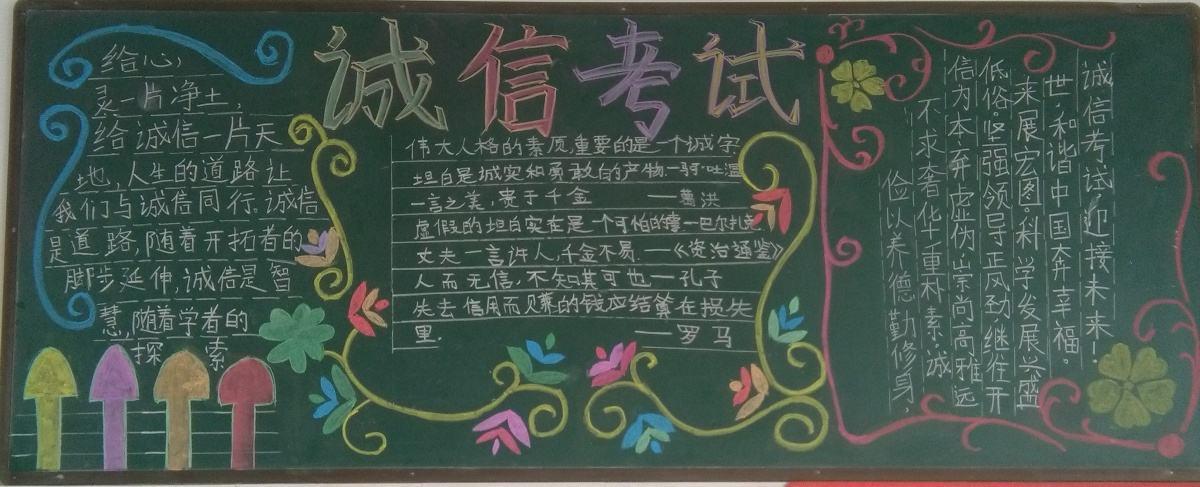 诚信考试
给心
灵一片净土，
给诚信一片天
地,人生的道路让
我们与诚信同行。诚信
是道路,随着开拓者的
脚步延伸,诚信是智
慧,随着学者的
探索
伟大人格的素质,重要的是一个诚字
坦白是诚实和勇敢的产物.—吐温
一言之美,贵于千金 ——葛洪
虚假的坦白实在是一个可怕的—巴尔扎克
丈夫一言许人,千金不易.—《资治通鉴》
人而无信,不知其可也—孔子
失去信用而的钱应结算在损失
里. ——罗马
俭以养德勤修身，
不求奢华重朴素·诚
信为本·弃虚伪崇尚高雅远
低俗。坚强领导正风劲继往开
来展宏图。科学发展兴盛
世·和谐中国奔幸福。
诚信考试迎接未来！